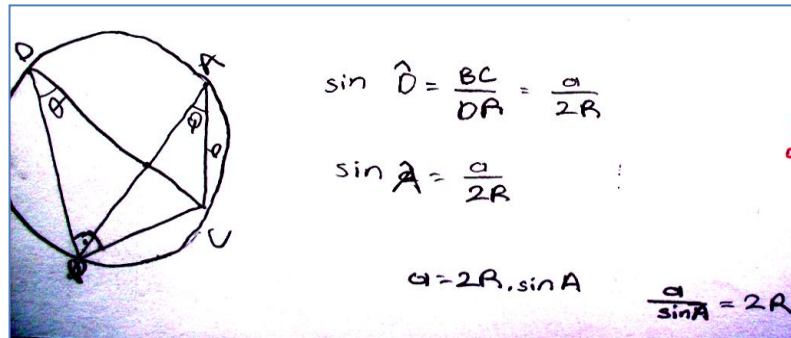 D
A
θ
φ
b
B
C
sin D̂ = BC/DB = a/2R
sin A = a/2R
a = 2R . sin A
a/sin A = 2R